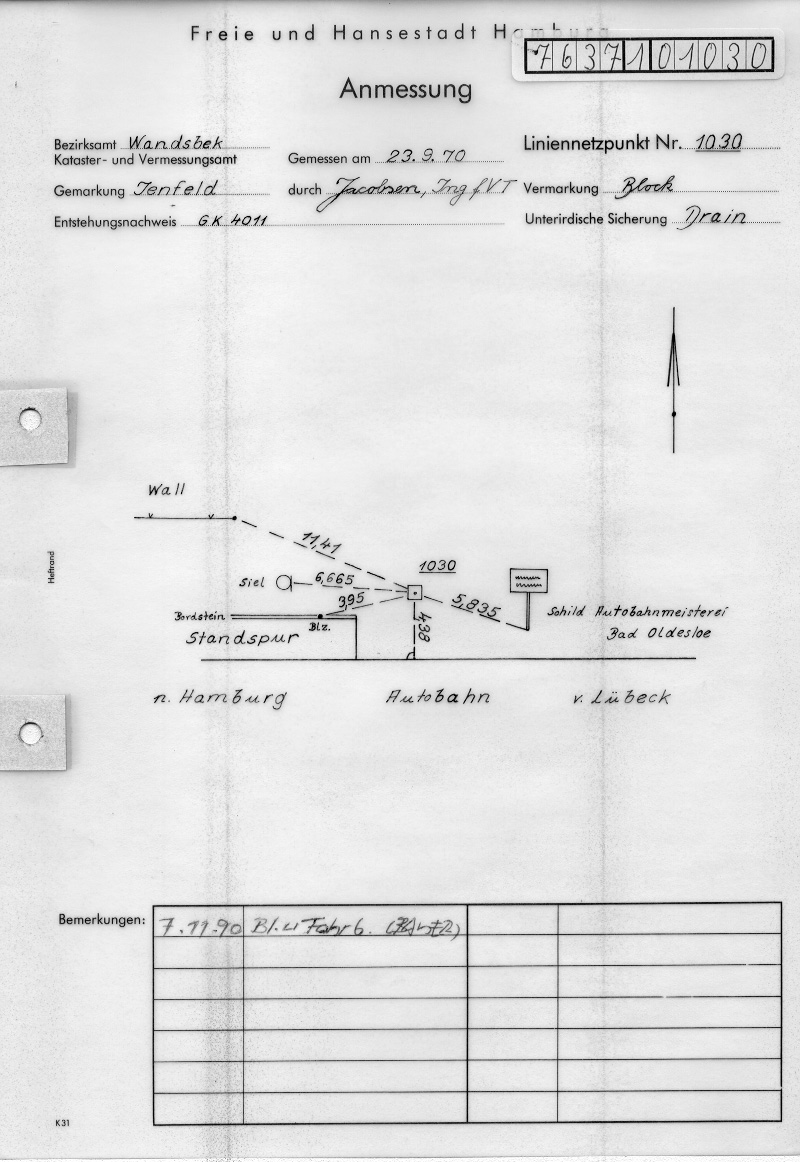 Freie und Hansestadt Hamburg
7637101030
Anmessung
Bezirksamt Wandsbek
Kataster- und Vermessungsamt
Gemessen am 23.9.70
Liniennetzpunkt Nr. 1030
Gemarkung Jenfeld
durch Jacobsen, Ing f VT
Vermarkung Block
Entstehungsnachweis GK 4011
Unterirdische Sicherung Drain
Wall
11,41
1030
Siel
6,665
3,95
5,835
4,38
Bordstein
Blz.
Standspur
Schild Autobahnmeisterei
Bad Oldesloe
n. Hamburg
Autobahn
v. Lübeck
Heftrand
Bemerkungen:
7.11.90 Bl. u Fahrb.
K31